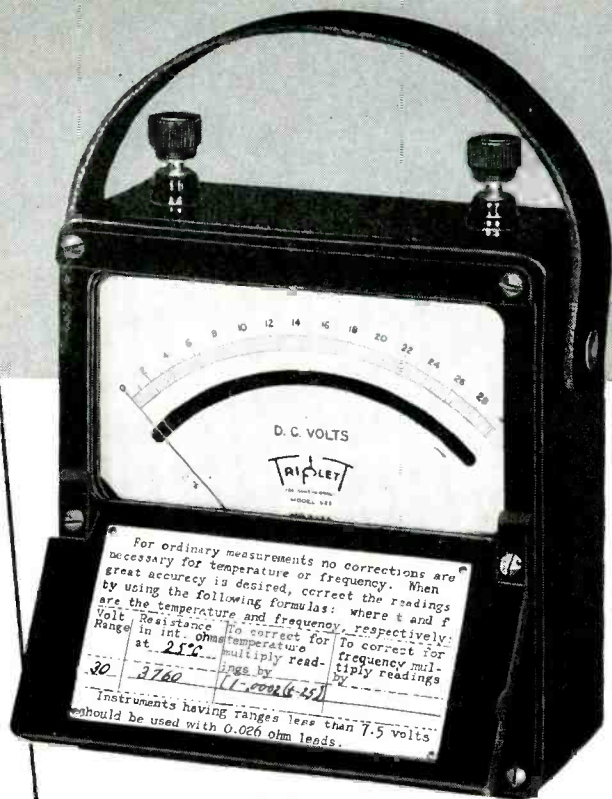 0 2 4 6 8 10 12 14 16 18 20 22 24 26 28
D. C. VOLTS
TRIPLETT
For ordinary measurements no corrections are
necessary for temperature or frequency. When
great accuracy is desired, correct the readings
by using the following formulas: where t and f
are the temperature and frequency, respectively:
Volt Range
Resistance in int. ohms at 25°C
To correct for temperature multiply readings by
To correct for frequency multiply readings by
30 3760 (1-.0002(t-25)
Instruments having ranges less than 7.5 volts
should be used with 0.026 ohm leads.